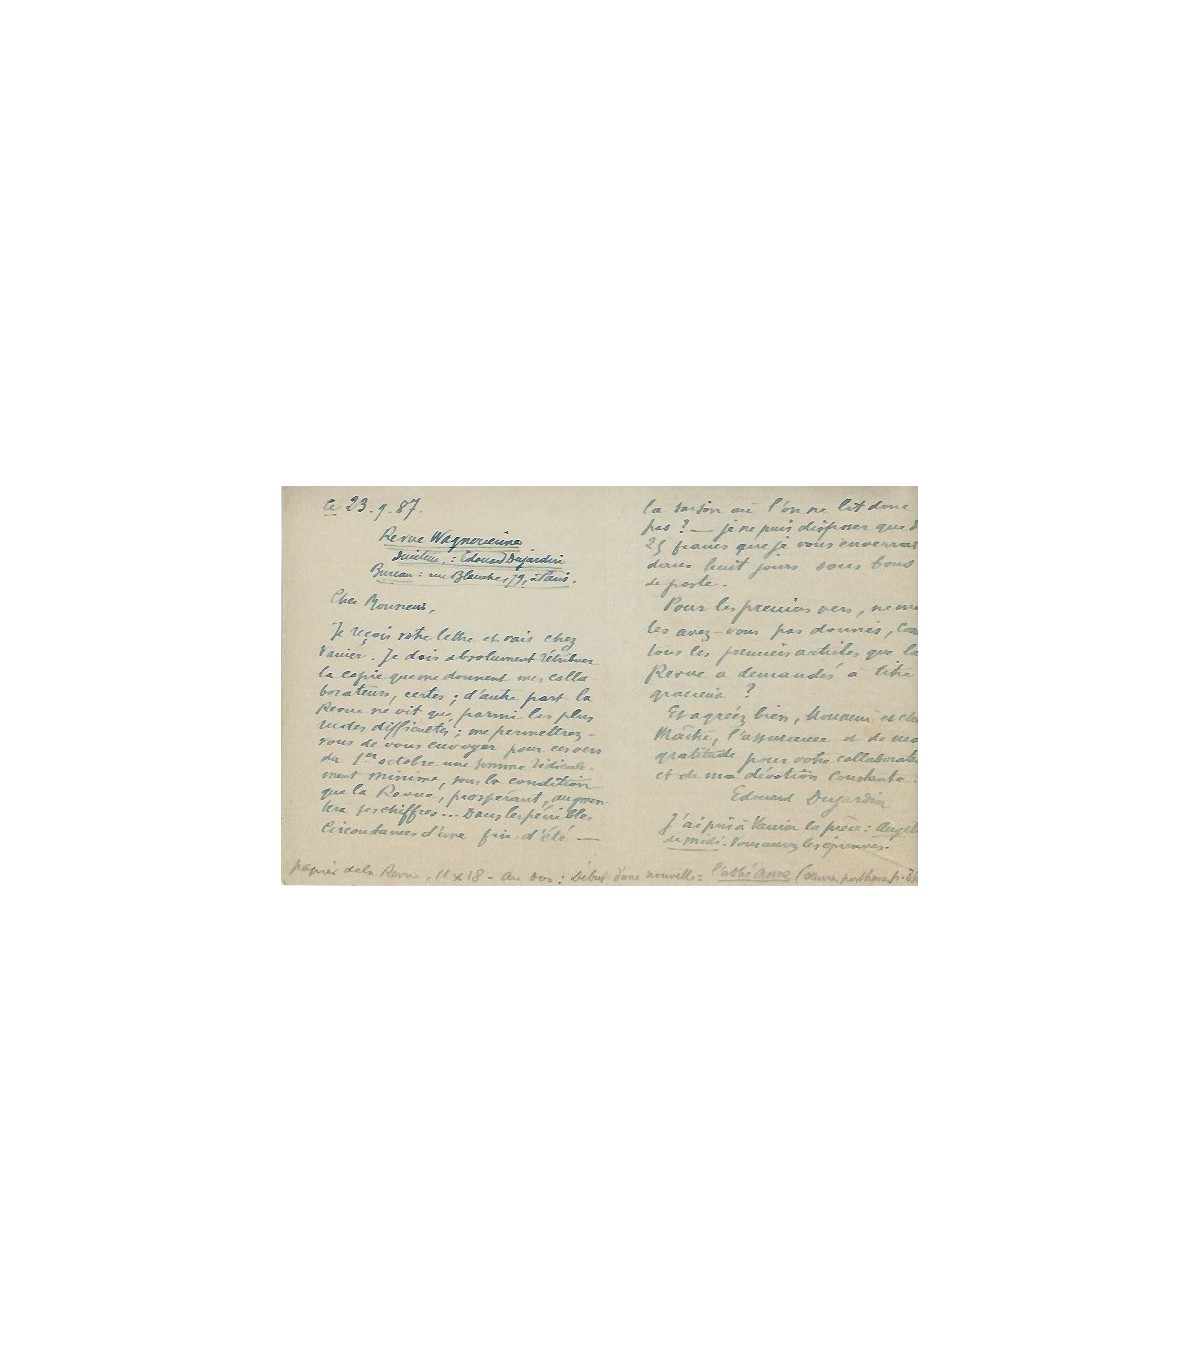 le 23.9.87.
Revue Wagnérienne
directeur : Edouard Dujardin
Bureau : rue Blanche, 79, à Paris.
Cher Monsieur,
Je reçois votre lettre et vais chez
Vanier. Je dois absolument rétribuer
la copie que me donnent mes colla-
borateurs, certes ; d'autre part la
Revue ne vit que, parmi les plus
rudes difficultés ; me permettrez-
vous de vous envoyer pour ces vers
du 1er octobre une somme ridicule-
ment minime, sous la condition
que la Revue, prospérant, augmen-
tera ses chiffres... Dans les pénibles
circonstances d'une fin d'été —
la saison où l'on ne lit donc
pas ? — je ne puis disposer que d
25 francs que je vous enverrai
dans huit jours sous bons
de poste.
Pour les premiers vers, ne me
les avez-vous pas donnés, com
tous les premiers articles que la
Revue a demandés à titre
gracieux ?
Et agréez bien, Monsieur et cher
Maître, l'assurance et de ma
gratitude pour votre collaborati
et de ma dévotion constante.
Edouard Dujardin
J'ai pris à Vanier la pièce : Angel
de midi. Vous aurez les épreuves.
papier de la Revue, 11 x 18 - Au dos : Début d'une nouvelle : l'abbé Anne (œuvres posthumes p.